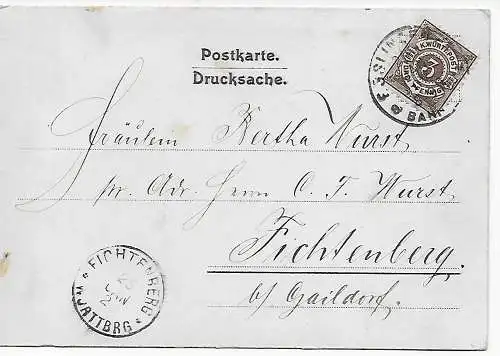 Postkarte.
Drucksache.
ESSLINGEN
BAHN
K. WÜRTT. POST
3
PFENNIG
Fräulein Bertha Wurst
pr. Adr. Herrn C. F. Wurst
Fichtenberg.
b/ Gaildorf.
FICHTENBERG
WÜRTTBRG